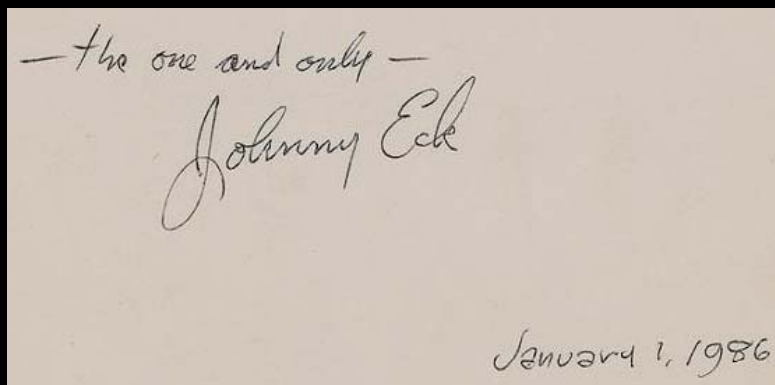 — the one and only —
Johnny Eck
January 1, 1986